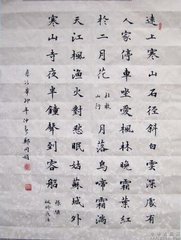 遠上寒山石徑斜白雲深處有
人家停車坐愛楓林晚霜葉紅
於二月花 杜牧 山行 月落烏啼霜滿
天江楓漁火對愁眠姑蘇城外
寒山寺夜半鐘聲到客船
張繼
楓橋夜泊